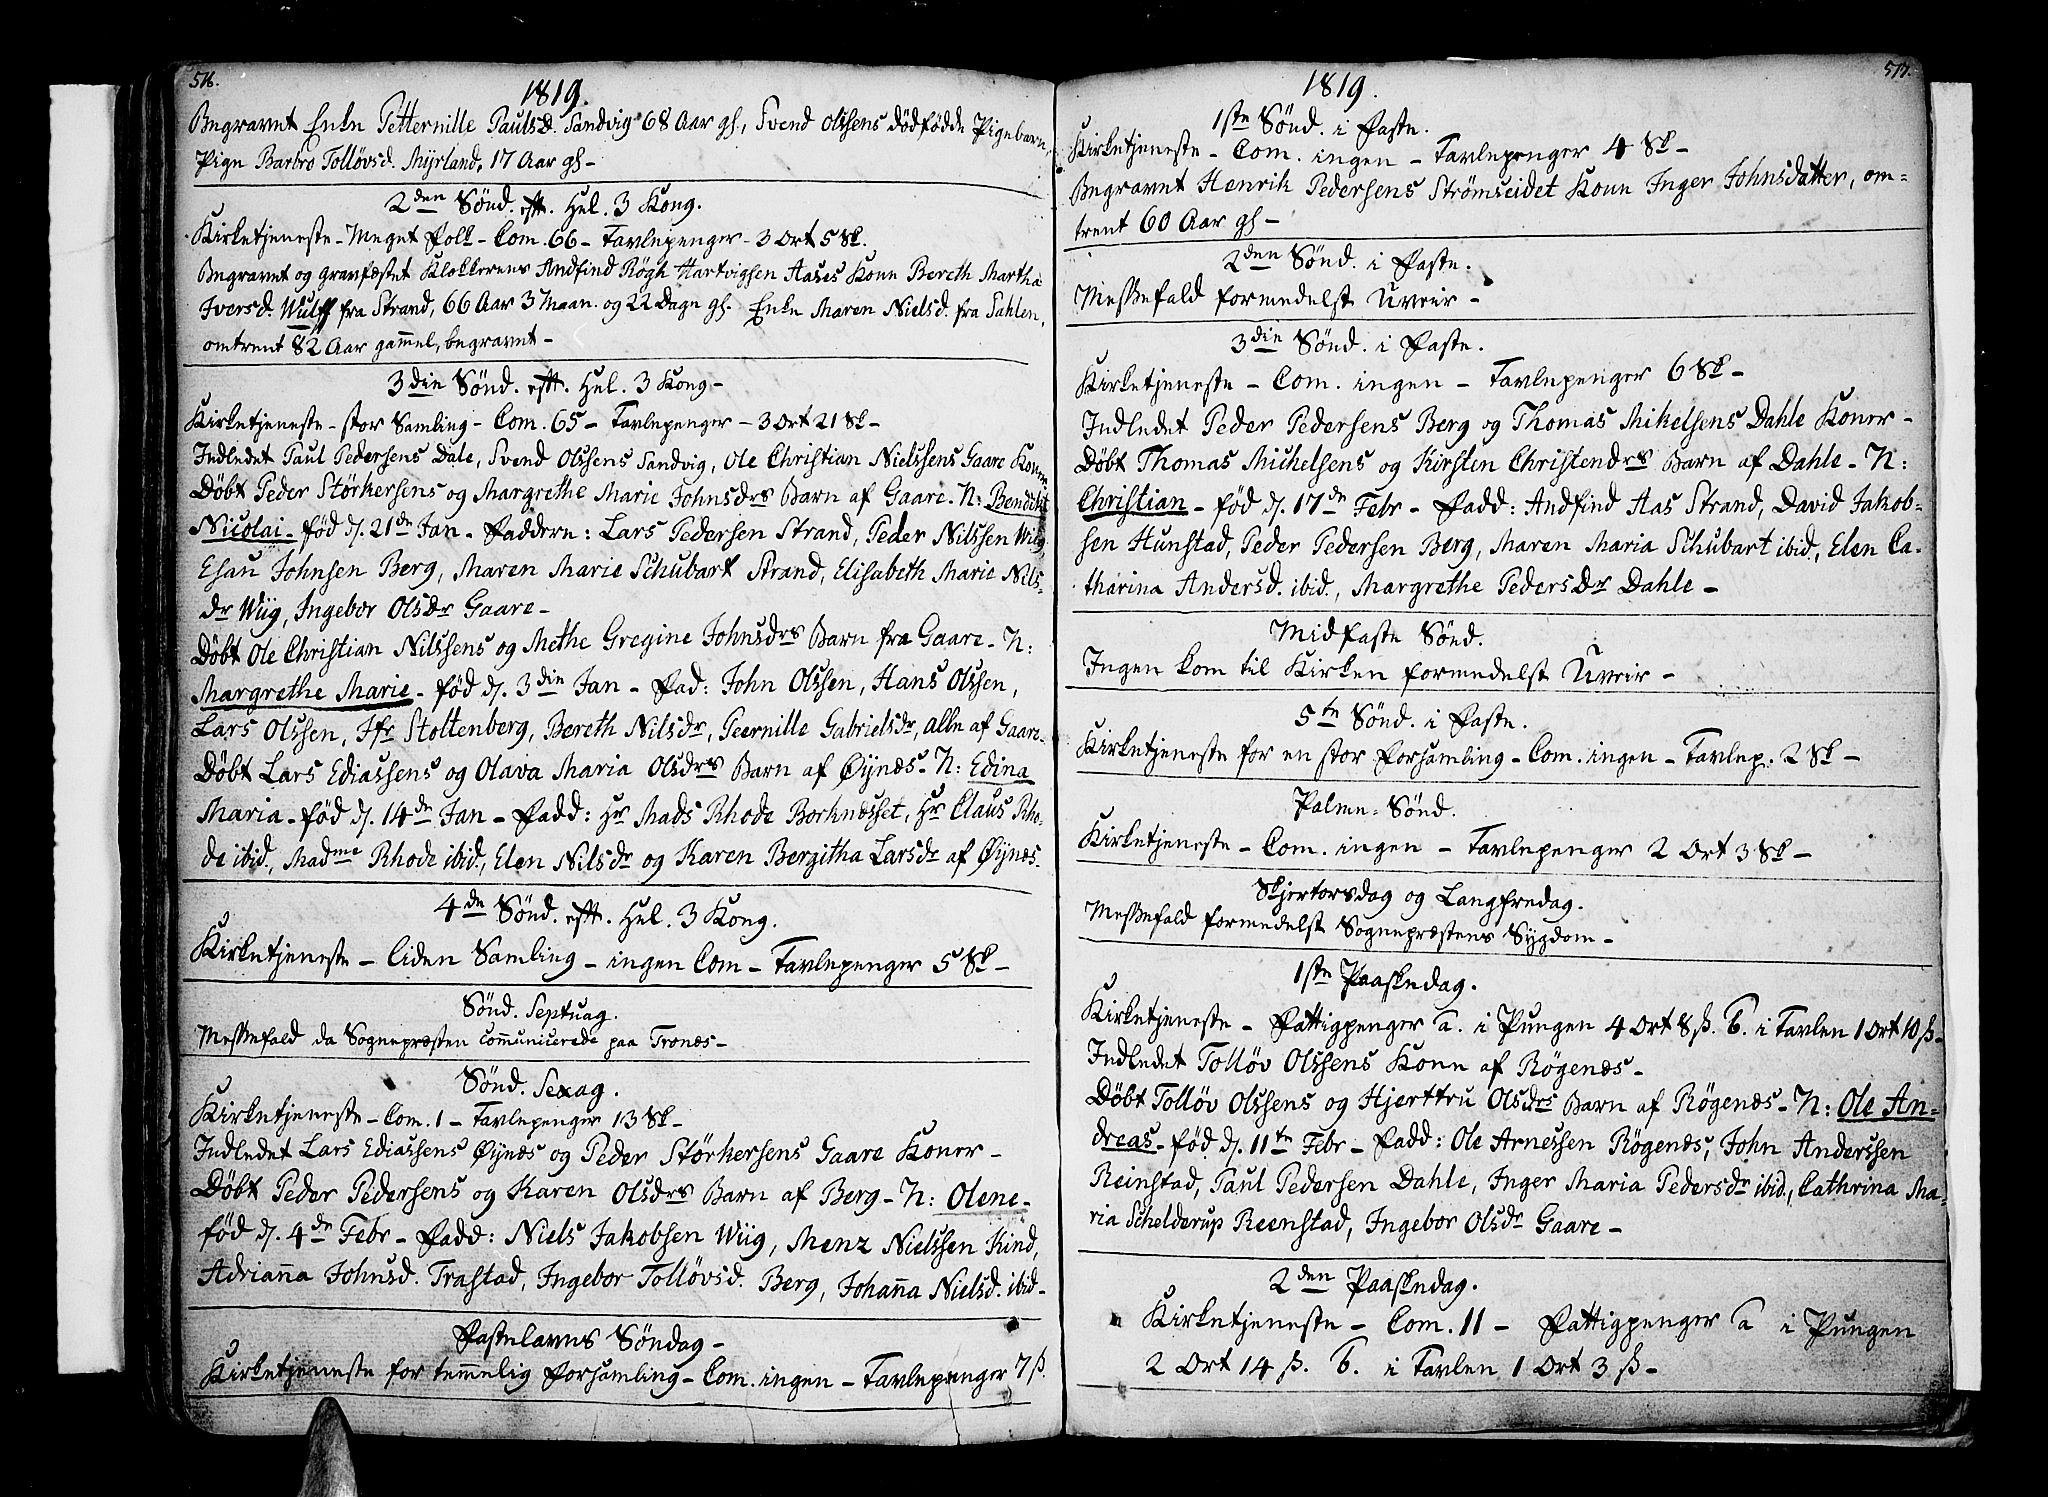 516.
1819.
Begravet Enke Petternille Paulsd. Sandvig 68 Aar gl., Svend Olssens dødfødde Pigebarn,
Pige Barbro Tolløvsd. Myrland, 17 Aar gl -
2den Sønd. eft. Hel. 3 Kong.
Kirketjeneste - Meget Folk - Com. 66 - Tavlepenger - 3 Ort 5 Sk.
Begravet og gravfæstet Klokkerens Andfind Rögh Hartvigsen Aases Kone Bereth Martha
Iversd. Wulff fra Strand, 66 Aar 3 Maan. og 22 Dage gl. Enke Maren Nielsd. fra Sahlen,
omtrent 82 Aar gam̅el, begravet -
3die Sønd. eft. Hel. 3 Kong -
Kirketjeneste - stor Samling - Com. 65 - Tavlepenger - 3 Ort 21 Sk -
Indledet Paul Pedersens Dale, Svend Olssens Sandvig, Ole Christian Nielssens Gaare Koner.
Døbt Peder Störkersens og Margrethe Marie Johnsdrs Barn af Gaare - N: Bendikt
Nicolai - fød d. 21de Jan - Faddere: Lars Pedersen Strand, Peder Nilssen Wiig,
Esau Johnsen Berg, Maren Marie Schubart Strand, Elisabeth Marie Nils-
dr Wiig, Ingebor Olsdr Gaare -
Døbt Ole Christian Nilssens og Methe Gregine Johnsdrs Barn fra Gaare - N:
Margrethe Marie - fød d. 3die Jan - Fad: John Olssen, Hans Olssen,
Lars Olssen, Jfr Stoltenberg, Bereth Nilsdr, Peernille Gabrielsdr, alle af Gaare.
Døbt Lars Ediassens og Olava Maria Olsdrs Barn af Øynæs - N: Edina
Maria - fød d. 14de Jan - Fadd: Hr Mads Rhode Borknæsset, Hr Claus Rho-
de ibid., Madme Rhode ibid., Elen Nilsdr og Karen Bergitha Larsdr af Øynæs.
4de Sønd. eft. Hel. 3 Kong.
Kirketjeneste - liden Samling - ingen Com - Tavlepenger 5 Sk -
Sønd. Septuag.
Messefald da Sognepræsten com̅unicerede paa Tronæs -
Sønd. Sexag.
Kirketjeneste - Com. 1 - Tavlepenger 13 Sk -
Indledet Lars Ediassens Øynæs og Peder Störkersens Gaare Koner -
Døbt Peder Pedersens og Karen Olsdrs Barn af Berg - N: Olene -
fød d. 4de Febr - Fadd: Niels Jakobsen Wiig, Menz Nielssen Kind,
Adrian̅a Johnsd. Trastad, Ingebor Tolløvsd. Berg, Johan̅a Nielsd. ibid -
Fastelavns Søndag -
Kirketjeneste for tem̅elig Forsamling - Com. ingen - Tavlepenger 7 ß.
517.
1819.
1ste Sønd. i Faste.
Kirketjeneste - Com. ingen - Tavlepenger 4 Sk -
Begravet Henrik Pedersens Strömseidet Kone Inger Johnsdatter, om-
trent 60 Aar gl -
2den Sønd. i Faste.
Messefald formedelst Uveir -
3die Sønd. i Faste.
Kirketjeneste - Com. ingen - Tavlepenger 6 Sk -
Indledet Peder Pedersens Berg og Thomas Mikelsens Dahle Koner -
Døbt Thomas Michelsens og Kirsten Christendrs Barn af Dahle - N:
Christian - fød d. 17de Febr - Fadd: Andfind Aas Strand, David Jakob-
sen Hunstad, Peder Pedersen Berg, Maren Maria Schubart ibid., Elen Ca-
tharina Andersd. ibid., Margrethe Pedersdr Dahle -
Midfaste Sønd.
Ingen kom til Kirken formedelst Uveir -
5te Sønd. i Faste.
Kirketjeneste for en stor Forsamling - Com. ingen - Tavlep. 2 Sk -
Palme-Sønd.
Kirketjeneste - Com. ingen - Tavlepenger 2 Ort 3 Sk -
Skjertorsdag og Langfredag.
Messefald formedelst Sognepræstens Sygdom -
1ste Paaskedag.
Kirketjeneste - Fattigpenger a. i Pungen 4 Ort 8 ß. b. i Tavlen 1 Ort 10 ß -
Indledet Tolløv Olssens Kone af Rögenæs -
Døbt Tolløv Olssens og Hjerttru Olsdrs Barn af Rögenæs - N: Ole An-
dreas - fød d. 11te Febr - Fadd: Ole Arnessen Rögenæs, John Anderssen
Reinstad, Paul Pedersen Dahle, Inger Maria Pedersdr ibid., Cathrina Ma-
ria Schelderup Reenstad, Ingebor Olsdr Gaare -
2den Paaskedag.
Kirketjeneste - Com. 11 - Fattigpenger a i Pungen
2 Ort 14 ß. b. i Tavlen 1 Ort 3 ß -